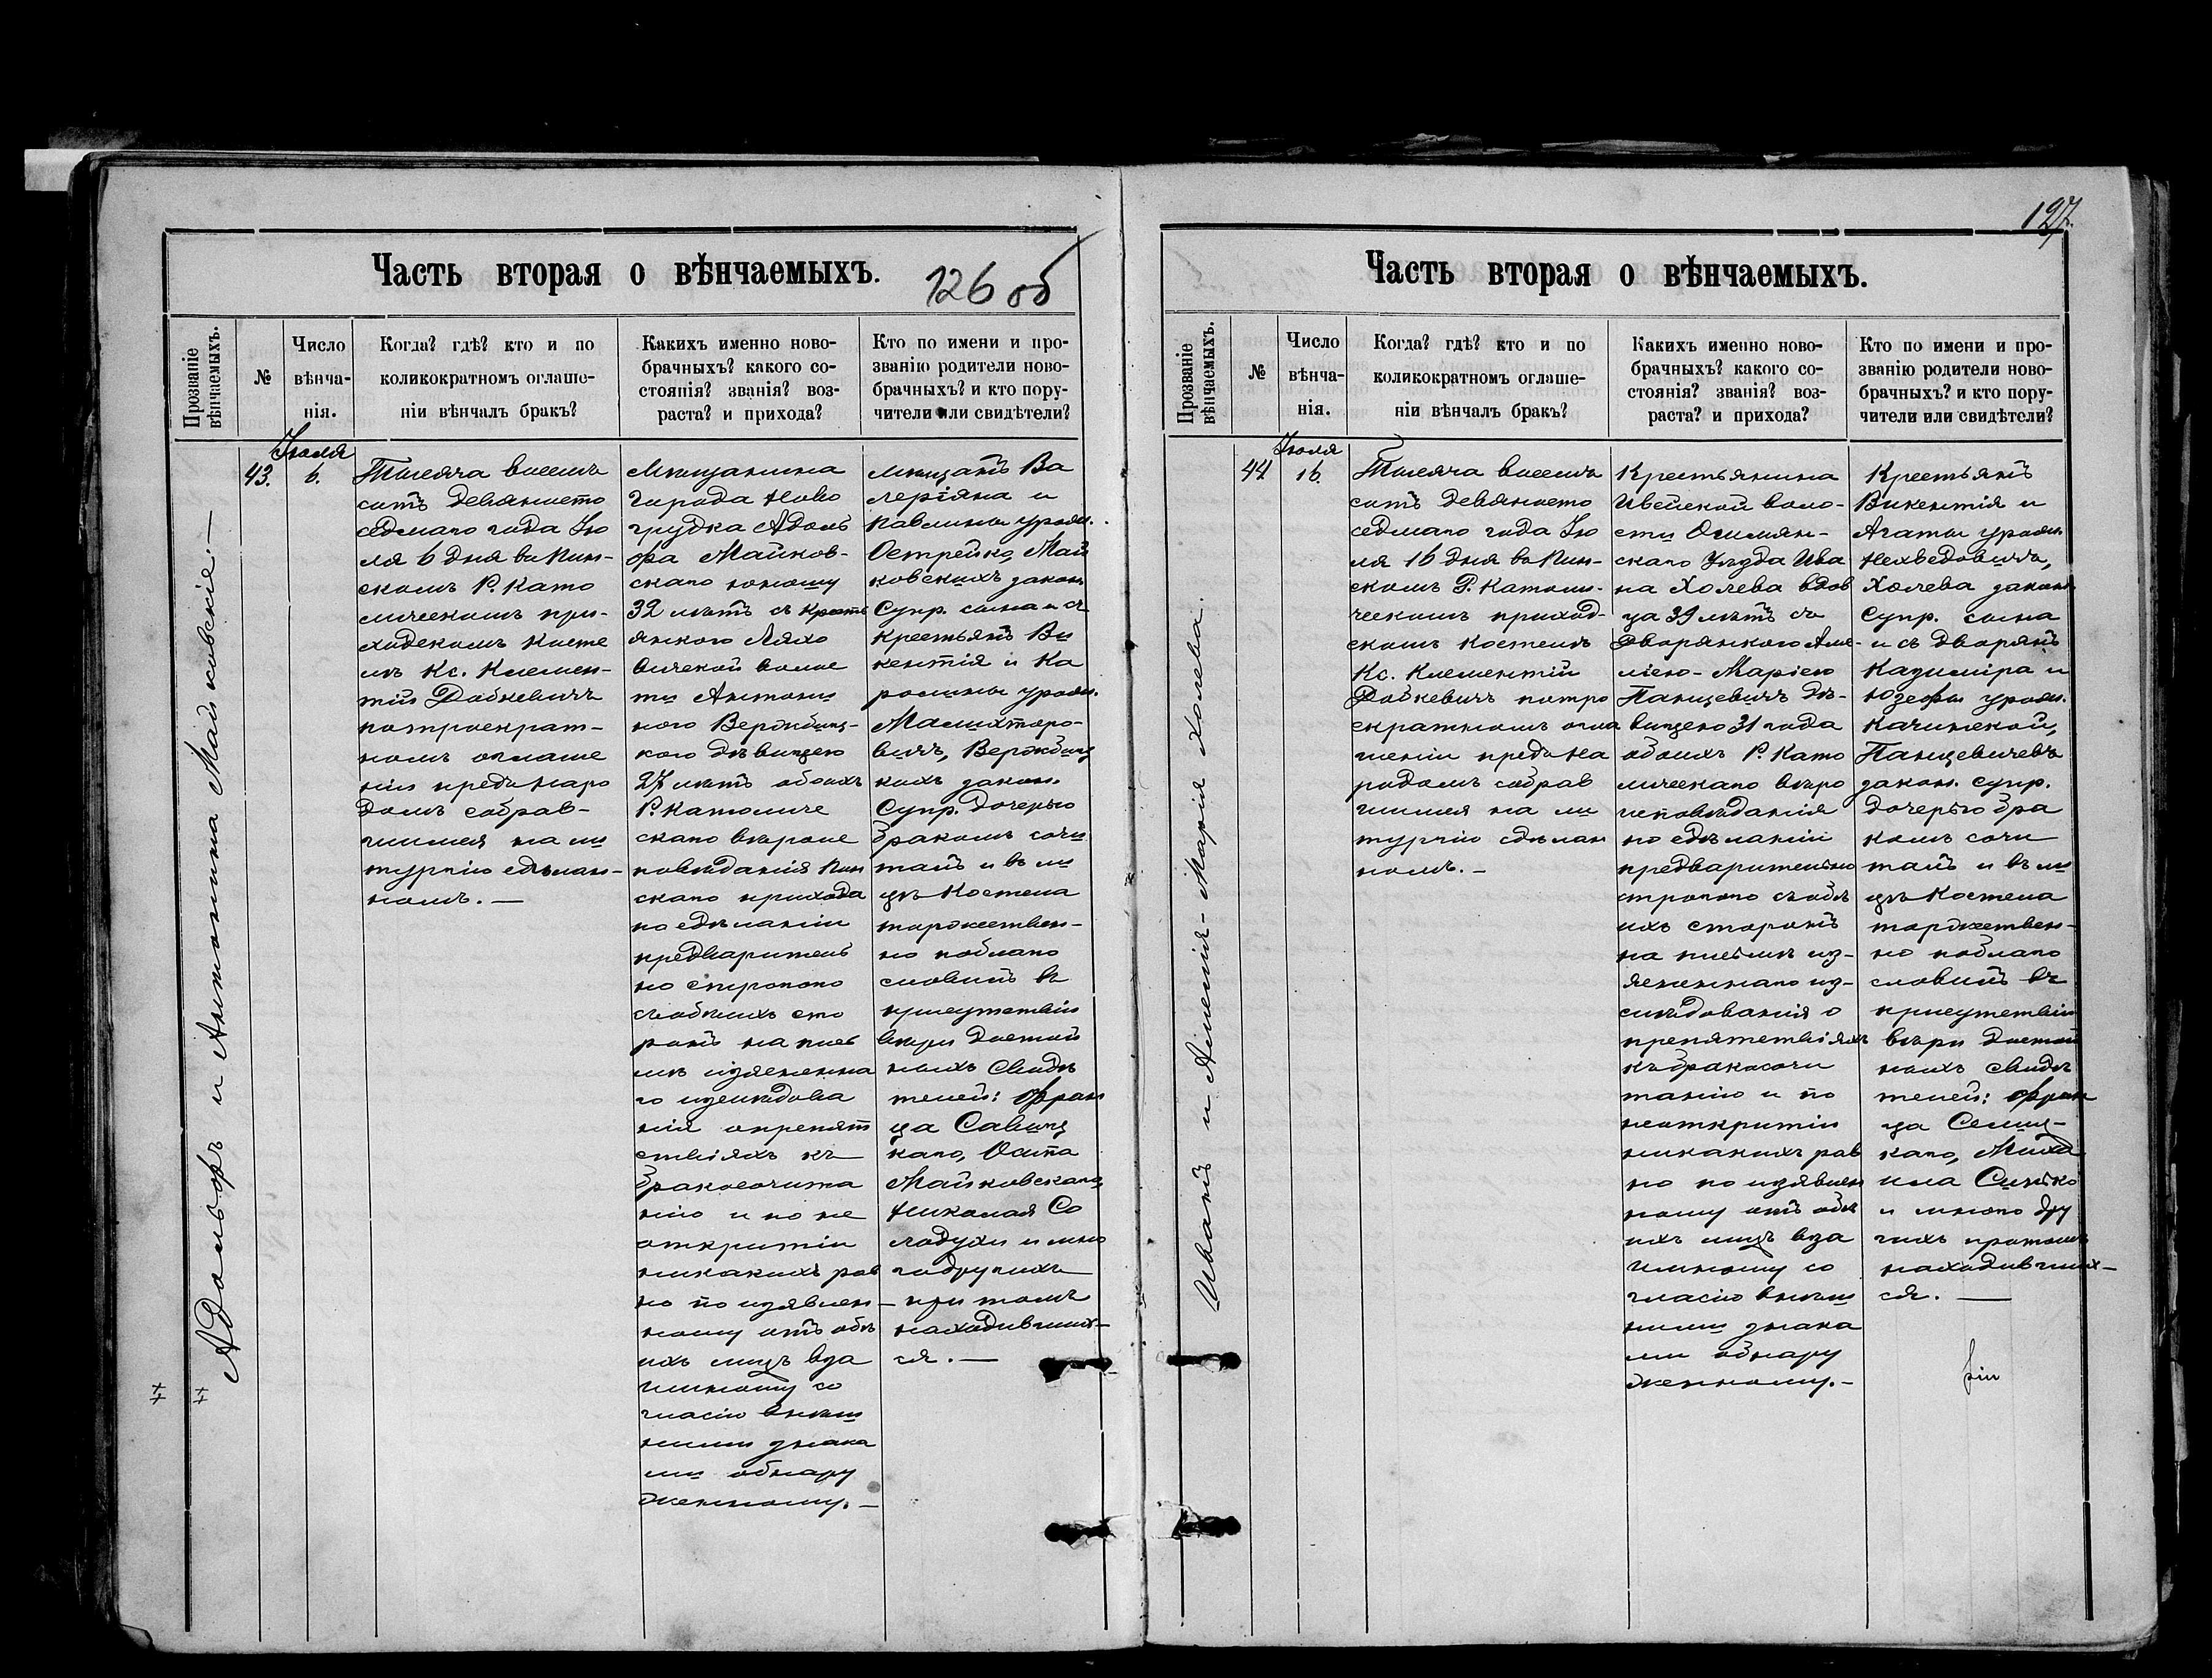 Часть вторая о вѣнчаемыхъ.
126 об
Прозваніе
вѣнчаемыхъ.
№
Число
вѣнча-
нія.
Когда? гдѣ? кто и по
коликократномъ оглаше-
ніи вѣнчалъ бракъ?
Какихъ именно ново-
брачныхъ? какого со-
стоянія? званія? воз-
раста? и прихода?
Кто по имени и про-
званію родители ново-
брачныхъ? и кто пору-
чители или свидѣтели?
Адольфъ и Антонина Майковскіе.—
43.
Іюля
6.
Тысяча восемь
сотъ девяносто
седмаго года Ію
ля 6 дня въ Пин-
скомъ Р. Като
лическомъ при-
ходскомъ косте
лѣ Кс. Клемен-
тій Добкевичъ
потроекрат-
номъ оглаше
ніи предъ наро
домъ собрав-
шимся на ли
тургію сдѣлан-
номъ.—
Мѣщанина
города Ново
грудка Адоль
фа Майков-
скаго юношу
32 лѣтъ съ кресть
янкою Ляхо
вичской волос
ти Антони
ною Вержбиц-
кою дѣвицею
27 лѣтъ обоихъ
Р. Католиче
скаго вѣроис
повѣданія Пин
скаго прихода
по сдѣланіи
предваритель
но строгого
съобѣихъ сто
ронъ на пись
мѣ изясненна
го изслѣдова
нія опрепят
ствіяхъ къ
бракосочета
нію и по не
открытіи
никакихъ рав
но по изъявлен-
ному отъ обѣ
ихъ лицъ вза
имному со
гласію внѣш
ними знака
ми обнару
женному.—
мѣщанъ Ва
леріяна и
Павлины урожд.
Острейко, Май
ковскихъ закон.
Супр. сына и съ
крестьянъ Ви
кентія и Ка
ролины урожд.
Малихторо-
вичъ, Вержбиц
кихъ закон.
Супр. дочерью
бракомъ соче
талъ и въ ли
цѣ Костела
торжествен-
но поблаго
словилъ въ
присутствіи
вѣры достой
ныхъ свидѣ
телей: Фран
ца Савиц
каго, Осипа
Майковскаго,
Николая Со
лодухи и мно
годругихъ
при томъ
находивших-
ся.—
127
Часть вторая о вѣнчаемыхъ.
Прозваніе
вѣнчаемыхъ.
№
Число
вѣнча-
нія.
Когда? гдѣ? кто и по
коликократномъ оглаше-
ніи вѣнчалъ бракъ?
Какихъ именно ново-
брачныхъ? какого со-
стоянія? званія? воз-
раста? и прихода?
Кто по имени и про-
званію родители ново-
брачныхъ? и кто пору-
чители или свидѣтели?
Иванъ и Амелія-Марія Холева.
44
Іюля
16.
Тысяча восемь
сотъ девяносто
седмаго года Ію
ля 16 дня въ Пин-
скомъ Р. Католи-
ческомъ приход-
скомъ костелѣ
Кс. Клементій
Добкевичъ потро
екратномъ огла
шеніи предъ на
родомъ собрав
шимся на ли
тургію сдѣлан
номъ.—
Крестьянина
Ивейской воло-
сти Ошмян-
скаго Уѣзда Ива
на Холева вдов
ца 39 лѣтъ съ
Дворянкою Аме-
ліею-Маріею
Панцевичъ дѣ-
вицею 31 года
обоихъ Р. Като
лическаго вѣро
исповѣданія
по сдѣланіи
предварительно
строгого съобѣ
ихъ сторонъ
на письмѣ из-
ясненнаго из-
слѣдованія о
препятствіяхъ
къ бракосоче
танію и по
неоткрытіи
никакихъ рав
но по изъявлен
ному отъ обѣ
ихъ лицъ вза
имному со
гласію внѣш
ними знака
ми обнару
женному.—
Крестьянъ
Викентія и
Агаты урожд.
Нехведовичъ,
Холева закон.
Супр. сына
и съ дворянъ
Казиміра и
Юзефы урожд.
Качинской,
Панцевичевъ
закон. супр.
дочерью бра
комъ соче
талъ и въ ли
цѣ Костела
торжествен-
но поблаго
словилъ въ
присутствіи
вѣры достой
ныхъ свидѣ
телей: Фран
ца
каго, Миха
ила
и много дру
гихъ притомъ
находивших-
ся.—